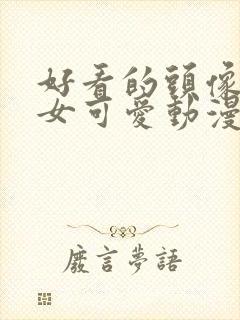 好看的頭像
女可愛動漫
廢言夢語